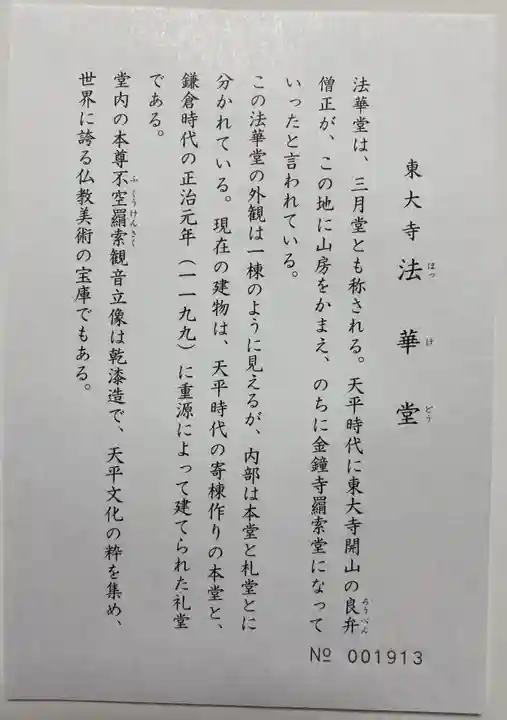 東大寺 法華堂
はっ け どう
法華堂は、三月堂とも称される。天平時代に東大寺開山の良弁
ろうべん
僧正が、この地に山房をかまえ、のちに金鐘寺羂索堂になって
いったと言われている。
この法華堂の外観は一棟のように見えるが、内部は本堂と札堂とに
分かれている。現在の建物は、天平時代の寄棟作りの本堂と、
鎌倉時代の正治元年(一一九九)に重源によって建てられた礼堂
である。
堂内の本尊不空羂索観音立像は乾漆造で、天平文化の粋を集め、
ふくうけんさく
世界に誇る仏教美術の宝庫でもある。
№ 001913